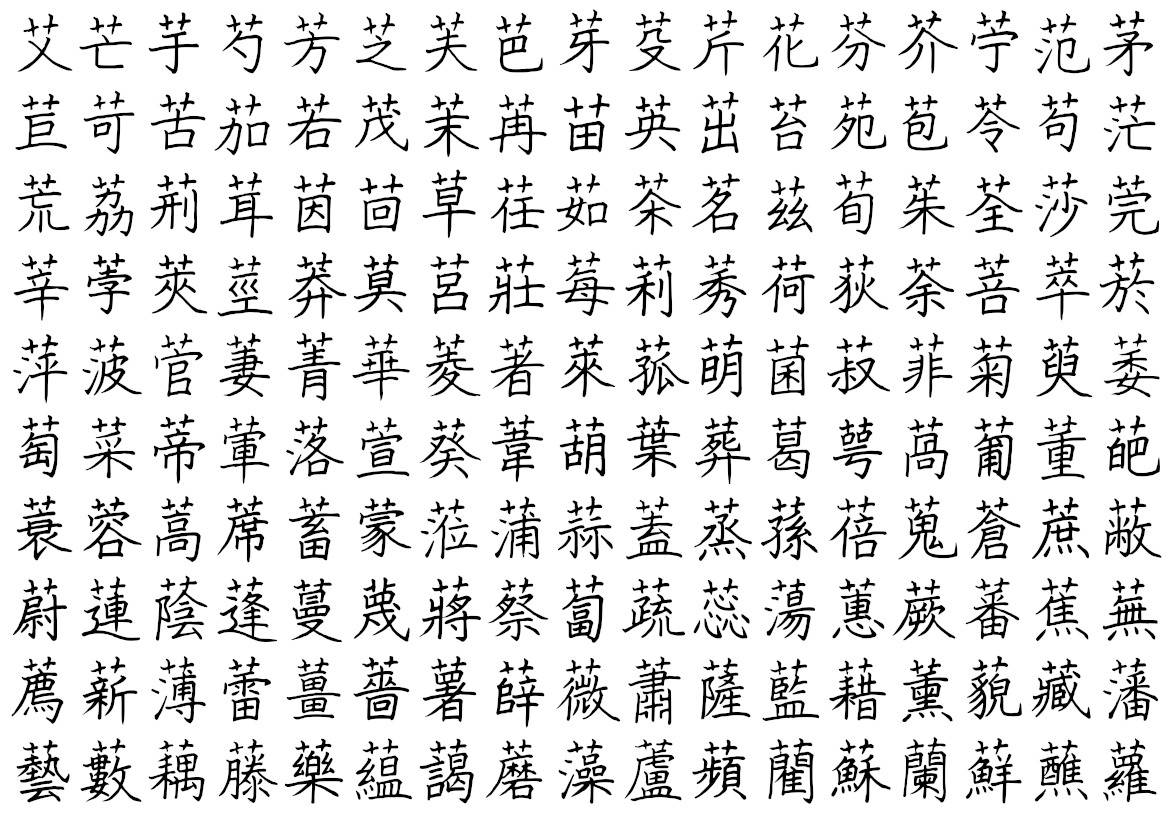 艾芒芋芍芳芝芙芭芽芟芹花芬芥苧范茅
苣苛苦茄若茂茉苒苗英茁苔苑苞苓苟茫
荒荔荊茸茵茴草荏茹茶茗茲荀茱荃莎莞
莘荸莢莖莽莫莒莊莓莉莠荷荻荼菩萃菸
萍菠菅萋菁華菱著萊菰萌菌菽菲菊萸萎
萄菜蒂葷落萱葵葦葫葉葬葛萼萵葡董葩
蓑蓉蒿蓆蓄蒙蒞蒲蒜蓋蒸蓀蓓蒐蒼蔗蔽
蔚蓮蔭蓬蔓蔑蔣蔡蔔蔬蕊蕩蕙蕨蕃蕉蕪
薦薪薄蕾薑薔薯薛薇蕭薩藍藉薰藐藏藩
藝藪藕藤藥蘊藹蘑藻蘆蘋藺蘇蘭蘚蘸蘿